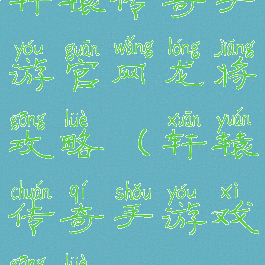 轩辕传奇手
yóu guān wǎng lóng jiàng
游官网龙将
gōng lüè （ xuān yuán
攻略（轩辕
chuán qí shǒu yóu xì
传奇手游戏
gōng lüè